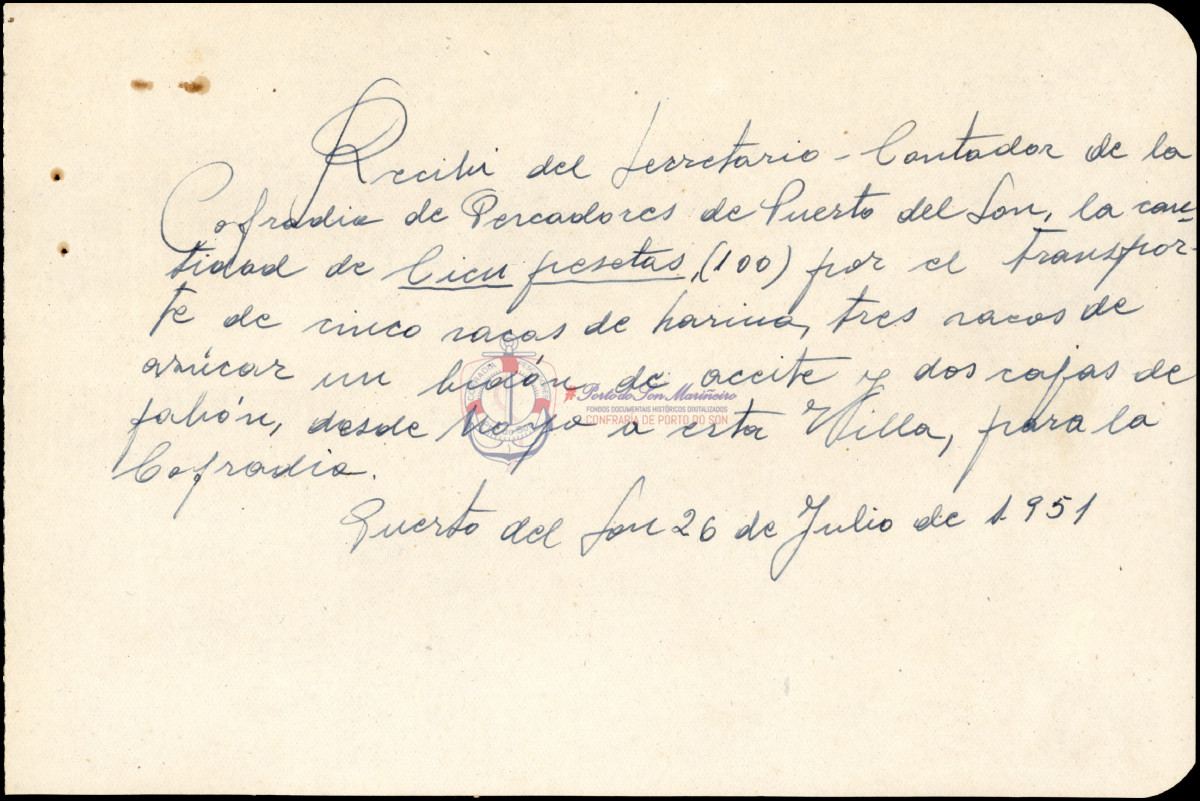 Recibí del Secretario-Contador de la
Cofradia de Pescadores de Puerto del Son, la can-
tidad de Cien pesetas, (100) por el transpor-
te de cinco sacos de harina, tres sacos de
azúcar un bidón de aceite y dos cajas de
jabón, desde Noya a esta Villa, para la
Cofradia.
Puerto del Son 26 de Julio de 1951
#Porto do Son Mariñeiro
FONDOS DOCUMENTAIS HISTÓRICOS DIXITALIZADOS
CONFRARÍA DE PORTO DO SON